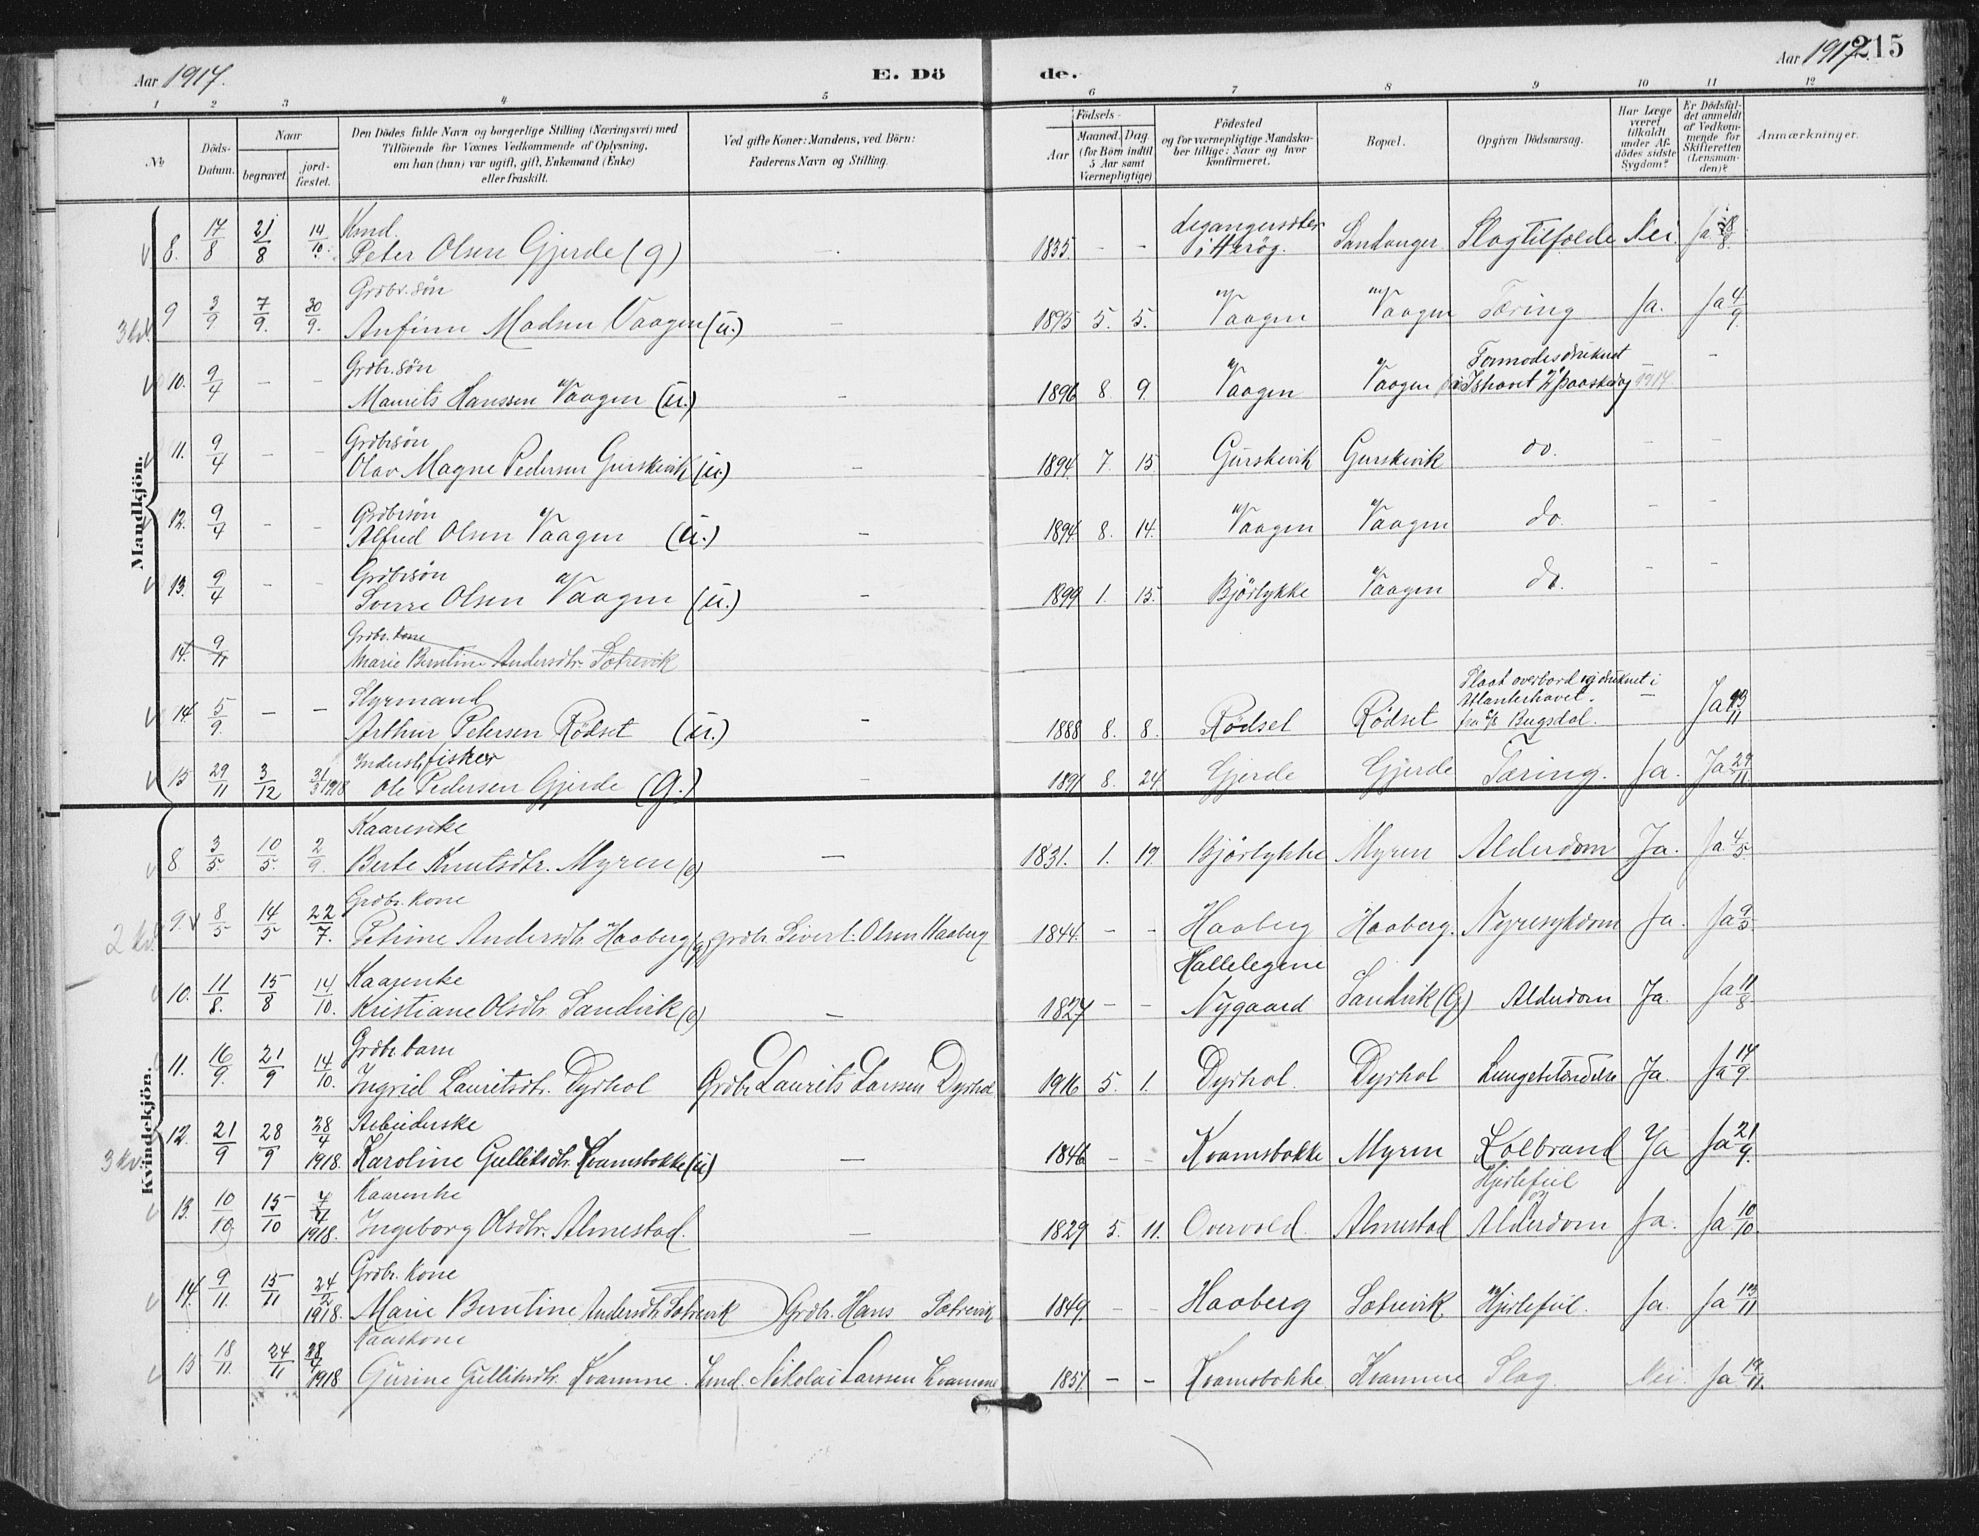 Aar 1917. E. Dö de. Aar 1917. 215
1 2 3 4 5 6 7 8 9 10 11 12
No
Döds-Datum.
Naar
begravet
jord-fæstet.
Den Dödes fulde Navn og borgerlige Stilling (Næringsvei) med
Tilföiende for Voxnes Vedkommende af Oplysning,
om han (hun) var ugift, gift, Enkemand (Enke)
eller fraskilt.
Ved gifte Koner: Mandens, ved Börn:
Faderens Navn og Stilling.
Födsels-
Aar
Maaned. Dag.
(for Börn indtil
5 Aar samt
Værnepligtige)
Födested
og for værnepligtige Mandska-
ber tillige: Naar og hvor
konfirmeret.
Bopæl.
Opgiven Dödsaarsag.
Har Læge
været
tilkaldt
under Af-
dödes sidste
Sygdom?
Er Dödsfal-
det anmeldt
af Vedkom-
mende for
Skifteretten
(Lensman-
den)?
Anmærkninger.
Mandkjön.
8. 17/8 21/8 14/10. Kmd.
Peter Olsen Gjerde (g) 1835. - - i Herög. Sandanger Slagtilfælde Nei. Ja 18/8.
9 3/9 7/9. 30/9. Grdbr. sön
Anfinn Madsen Vaagen (u.) - 1895 5. 5. Vaagen Vaagen Tæring Ja. Ja 4/9.
10. 9/4 - - Grdbr. sön Formodes druknet
Maurits Hanssen Vaagen (u.) - 1896 8 9. Vaagen Vaagen i Ishavet 2 paaskedag 1917 - -
11. 9/4 - - Grdbrsön
Olav Magne Pedersen Gurskevik (u.) - 1894 7. 15. Gurskevik Gurskevik do. - -
12. 9/4 - - Grdbrsön
Alfred Olsen Vaagen (u.) - 1894 8. 14. Vaagen Vaagen do. - -
13. 9/4 - - Grdbrsön
Sverre Olsen Vaagen (u.) - 1899 1. 15. Bjørlykke Vaagen do. - -
14. 9/11 Grdbr. kone
Marie Bentine Andersdtr. Sotrevik
14 5/9. - - Styrmand Slaat overbord og druknet i
Atlanterhavet.
Arthur Petersen Rödset (u.) - 1888 8. 8. Rödset Rödset fra Bugsdal. - Ja 13/11
15 29/11 3/12 31/3 1918 Inderst, fisker
Ole Pedersen Gjerde (g.) - 1891 8. 24 Gjerde Gjerde Tæring. Ja. Ja 29/11
Kvindekjön.
8. 3/5. 10/5. 2/9. Kaarenke
Berte Knutsdtr. Myren (e) - 1831. 1. 17. Bjørlykke Myren Alderdom Ja. Ja 4/5.
9. 8/5 14/5 22/7. Grdbr. kone
2 kv. Petrine Andersdtr. Haaberg (g) grdbr. Sivert Olsen Haaberg 1844. - - Haaberg Haaberg. Nyresykdom Ja. Ja 9/5.
10. 11/8. 15/8 14/10. Kaarenke
Kristiane Olsdtr. Sandvik (e) - 1827 - - Nygaard Sandvik (G) Alderdom Ja. Ja 11/8
11. 16/9. 21/9 14/10. Grdbr. barn
Ingrid Lauritsdtr. Dyrhol Grdbr. Laurits Larsen Dyrhol 1916 5. 1. Dyrhol. Dyrhol Lungebetændelse Ja. Ja 17/9
12. 21/9 28/9 28/4 1918. Arbeiderske
3 kv. Karoline Gulliksdtr. Kvamsbakke (u) - 1846 - - Kvamsbakke Myren Kolbrand Ja Ja 21/9.
13. 10/10. 15/10 7/4 1918. Kaarenke Hjertefeil
og
Ingeborg Olsdtr. Almestad. - 1829 5. 11. Overvold Almestad Alderdom Ja. Ja 10/10.
14. 9/11. 15/11 24/2 1918. Grdbr. kone
Marie Bentine Andersdtr. Sotrevik Grdbr. Hans Sotrevik 1849. - - Haaberg Sotrevik Hjertefeil. Ja. Ja 13/11
15 18/11. 24/11 28/4 1918 Kaarkone
Gurine Gulliksdtr. Kvamme. Kmd. Nikolai Larssen Kvamme 1857. - - Kvamsbakke Kvamme Slag. Nei. Ja 19/11.